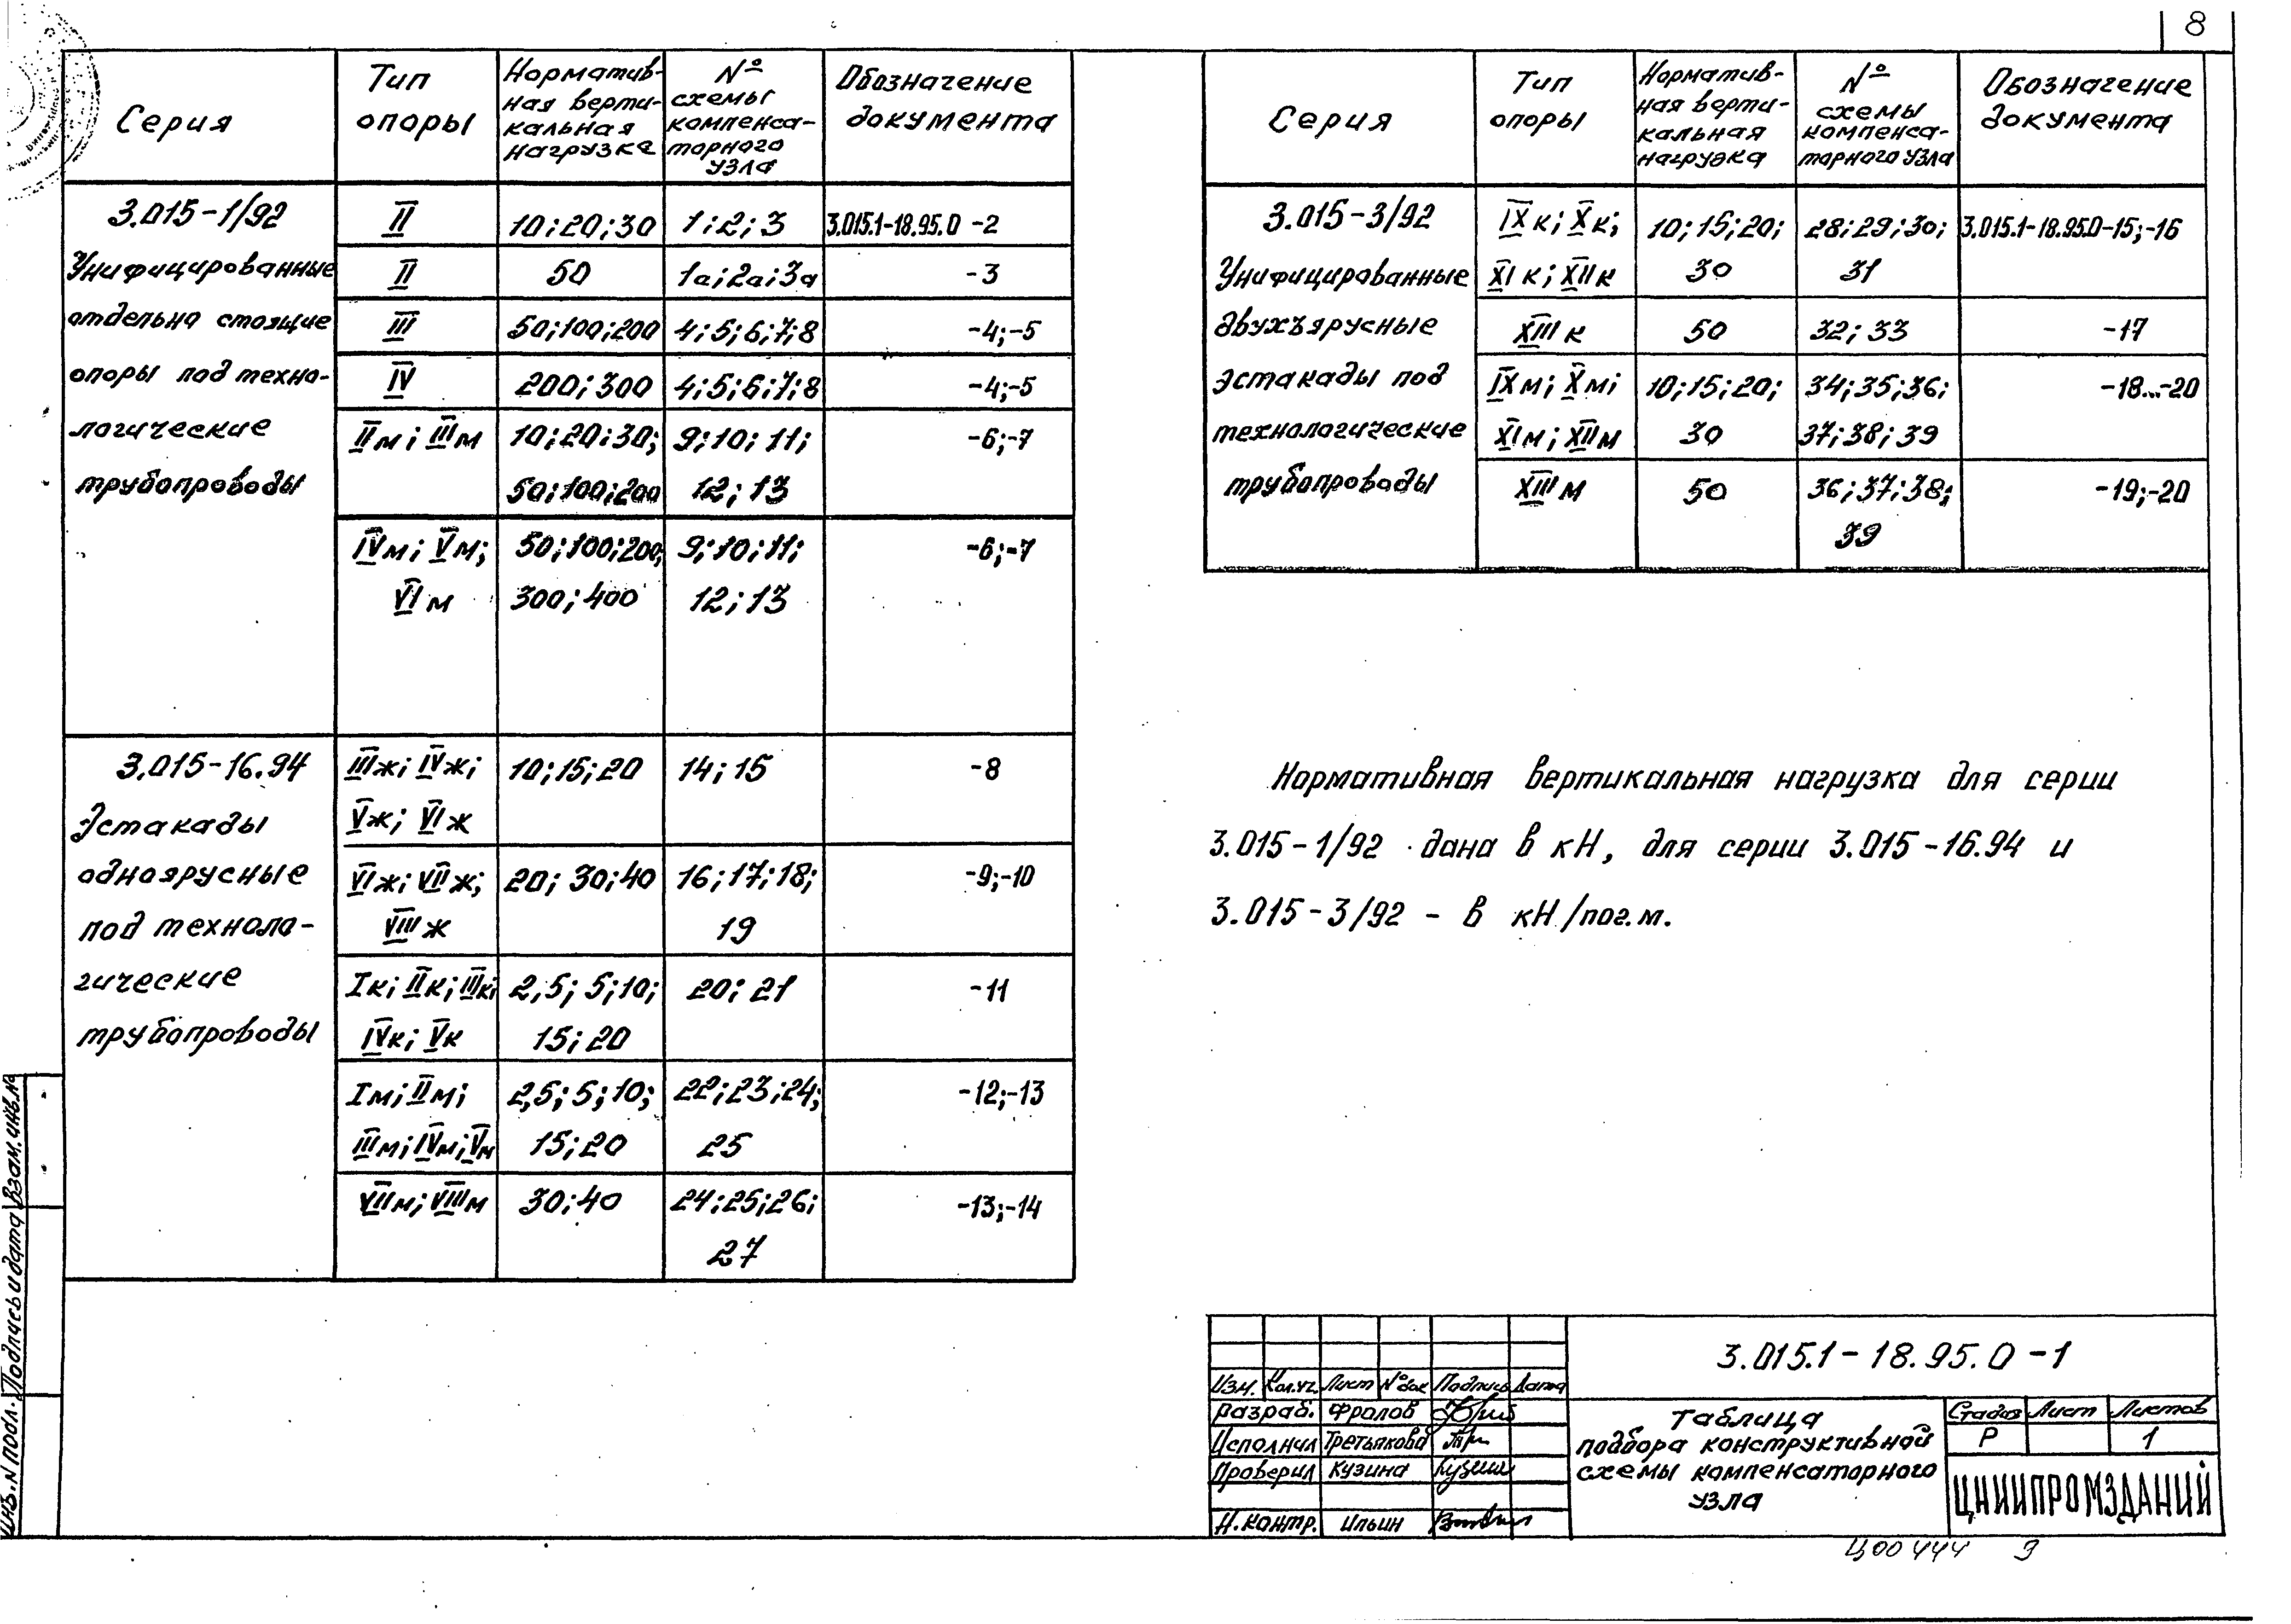 8
Серия
Тип опоры
Норматив-
ная верти-
кальная
нагрузка
№
схемы
компенса-
торного
узла
Обозначение
документа
3.015-1/92
Унифицированные
отдельно стоящие
опоры под техно-
логические
трубопроводы
II 10;20;30 1;2;3 3.015.1-18.95.0 -2
II 50 1а;2а;3а -3
III 50;100;200 4;5;6;7;8 -4;-5
IV 200;300 4;5;6;7;8 -4;-5
IIм; IIIм 10;20;30; 9;10;11; -6;-7
50;100;200 12;13
IVм; Vм; 50;100;200; 9;10;11; -6;-7
VIм 300;400 12;13
3.015-16.94
Эстакады
одноярусные
под техноло-
гические
трубопроводы
IIIж; IVж; 10;15;20 14;15 -8
Vж; VIж
VIж; VIIж; 20;30;40 16;17;18; -9;-10
VIIIж 19
Iк; IIк; IIIк; 2,5; 5;10; 20; 21 -11
IVк; Vк 15;20
Iм; IIм; 2,5; 5;10; 22;23;24; -12;-13
IIIм; IVм; Vм 15;20 25
VIIм; VIIIм 30;40 24;25;26; -13;-14
27
Серия
Тип
опоры
Норматив-
ная верти-
кальная
нагрузка
№
схемы
компенса-
торного узла
Обозначение
документа
3.015-3/92
Унифицированные
двухъярусные
эстакады под
технологические
трубопроводы
IXк; Xк; 10;15;20; 28;29;30; 3.015.1-18.95.0-15;-16
XIк; XIIк 30 31
XIIIк 50 32;33 -17
IXм; Xм; 10;15;20; 34;35;36; -18...-20
XIм; XIIм 30 37;38;39
XIIIм 50 36;37;38; -19;-20
39
Нормативная вертикальная нагрузка для серии
3.015-1/92 дана в кН, для серии 3.015-16.94 и
3.015-3/92 - в кН/пог.м.
3.015.1-18.95.0-1
Изм. Кол.уч. Лист №док Подпись Дата
Разраб. Фролов
Исполнил Третьякова
Проверил Кузина
Н.контр. Ильин
Таблица
подбора конструктивной
схемы компенсаторного
узла
Стадия Лист Листов
Р 1
ЦНИИПРОМЗДАНИЙ
Ц00444 9
Инв.N подл. Подпись и дата Взам.инв.N